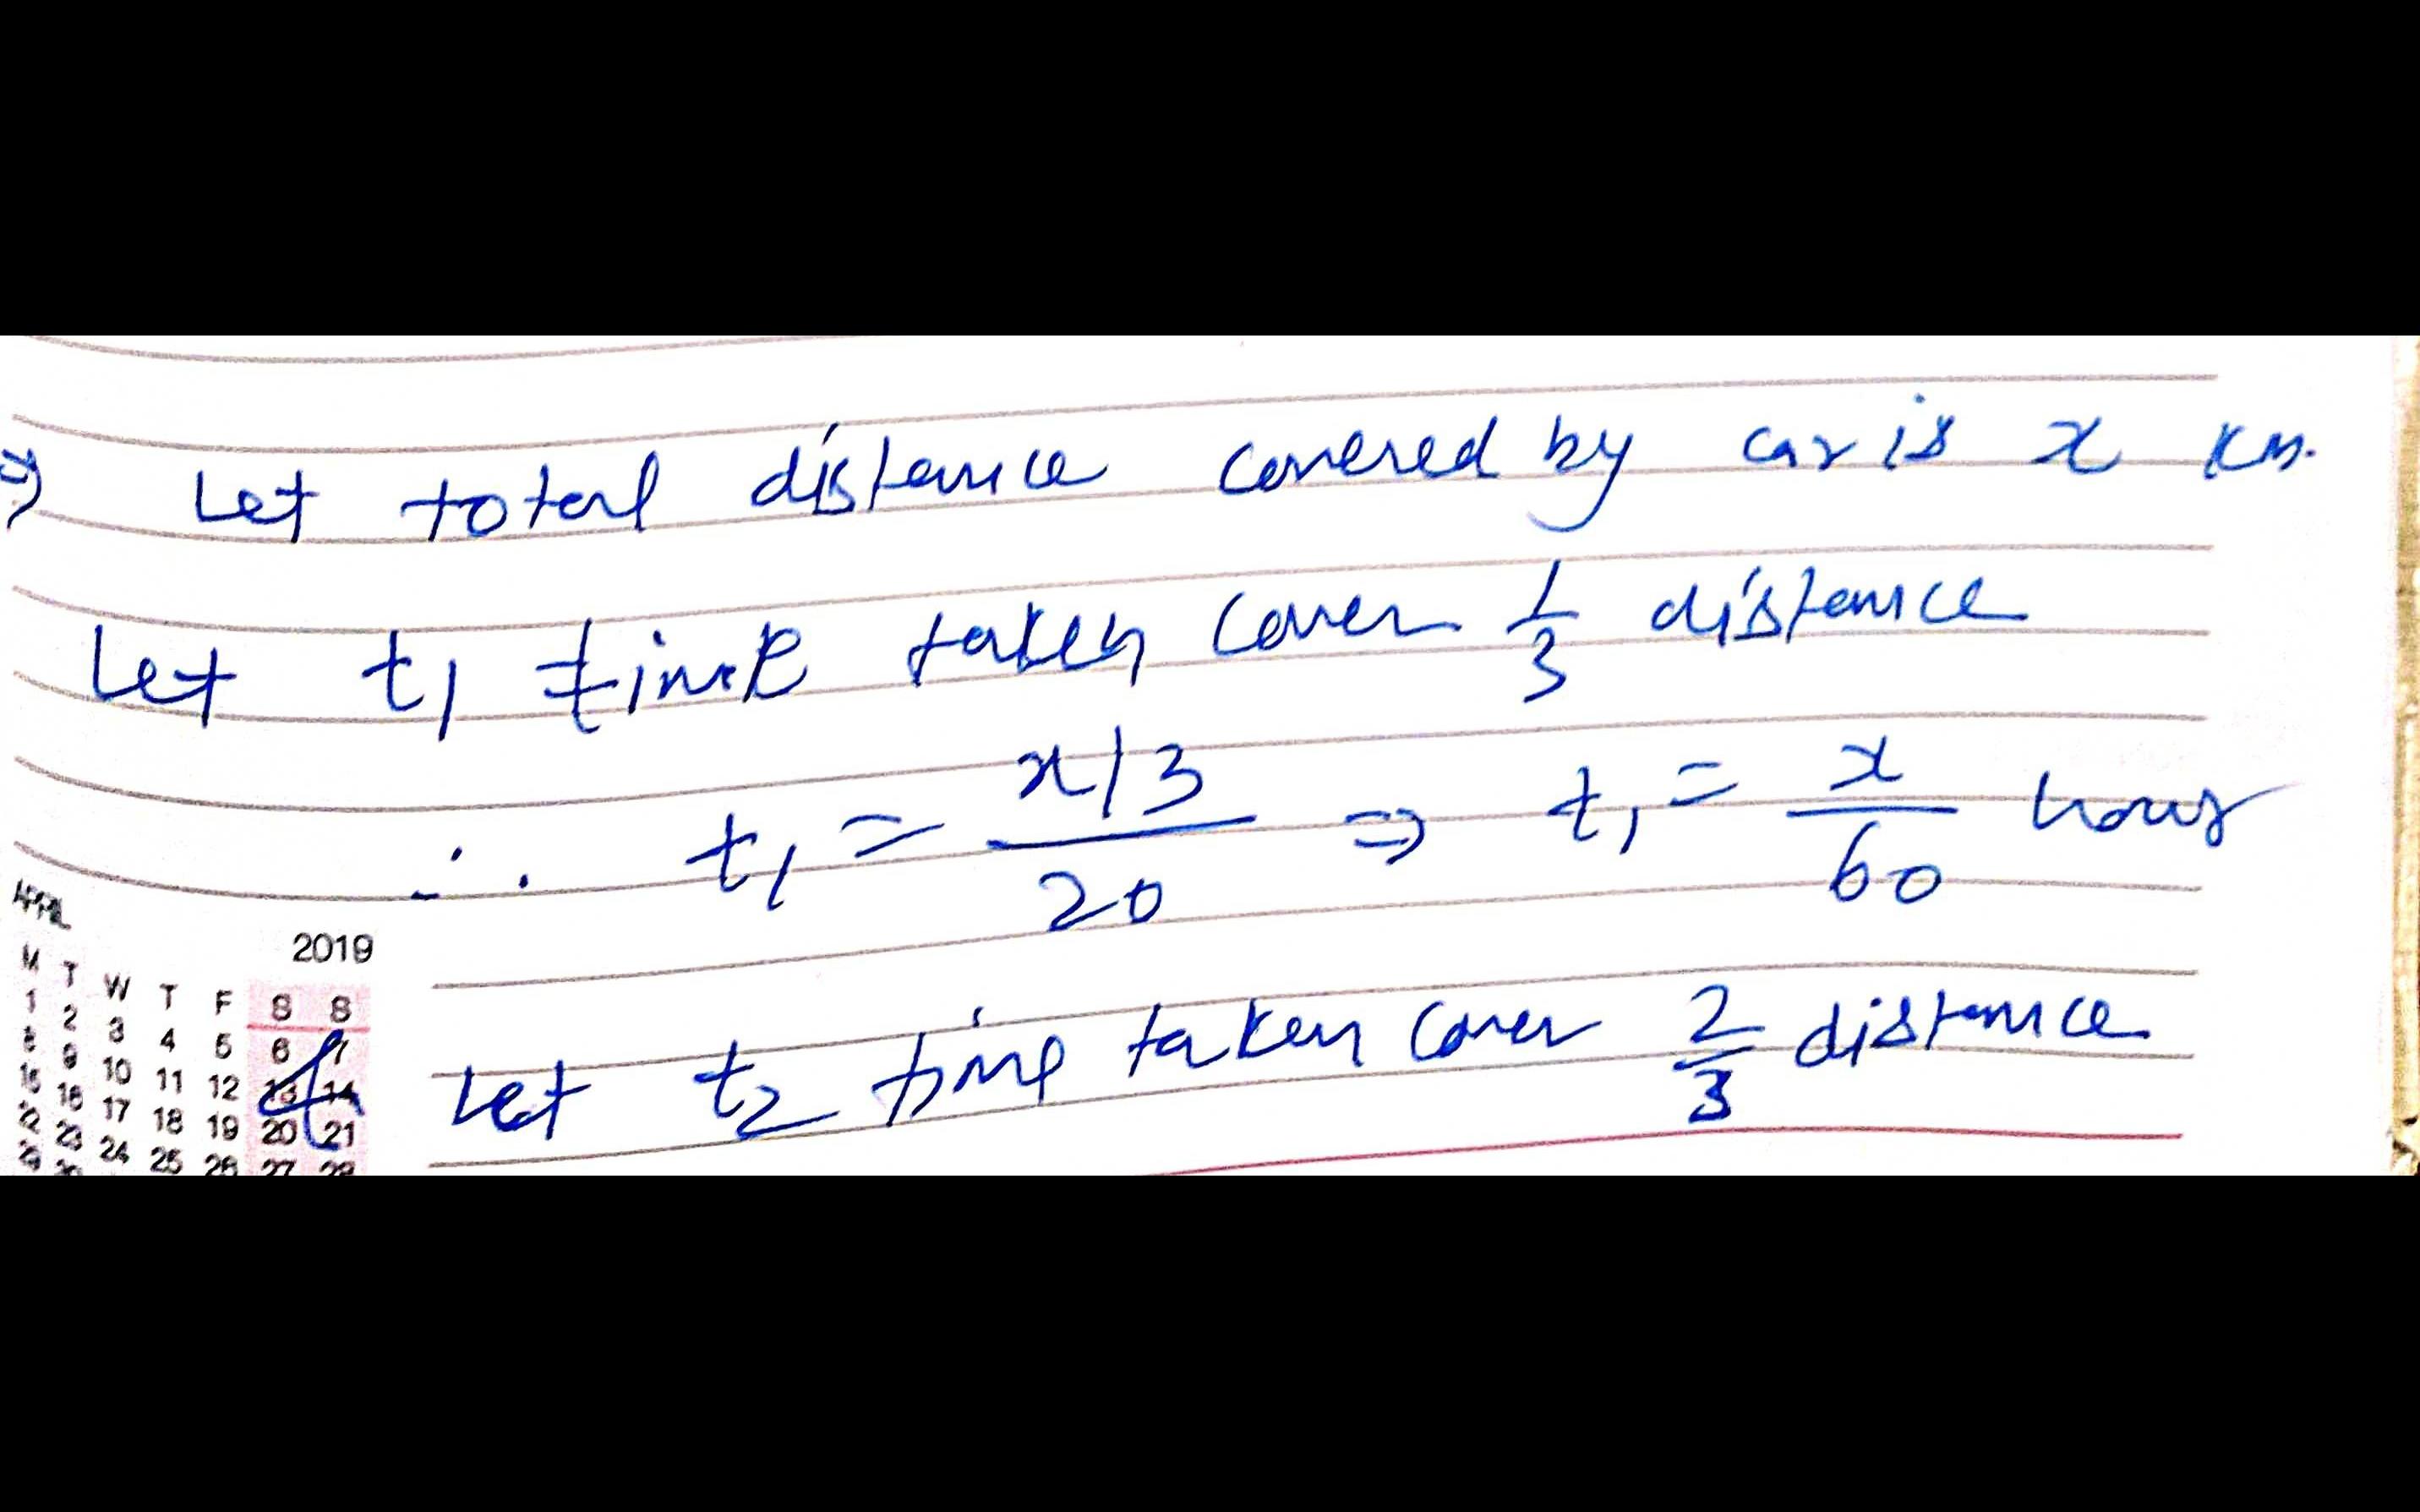 ⇒ Let total distance covered by car is x km.
Let t₁ time taken cover 1/3 distance
∴ t₁ = x/3 / 20 ⇒ t₁ = x/60 hours
2019
M T W T F S S
1 2 3 4 5 6 7
8 9 10 11 12 13 14
15 16 17 18 19 20 21
22 23 24 25 26 27 28
& Let t₂ time taken cover 2/3 distance